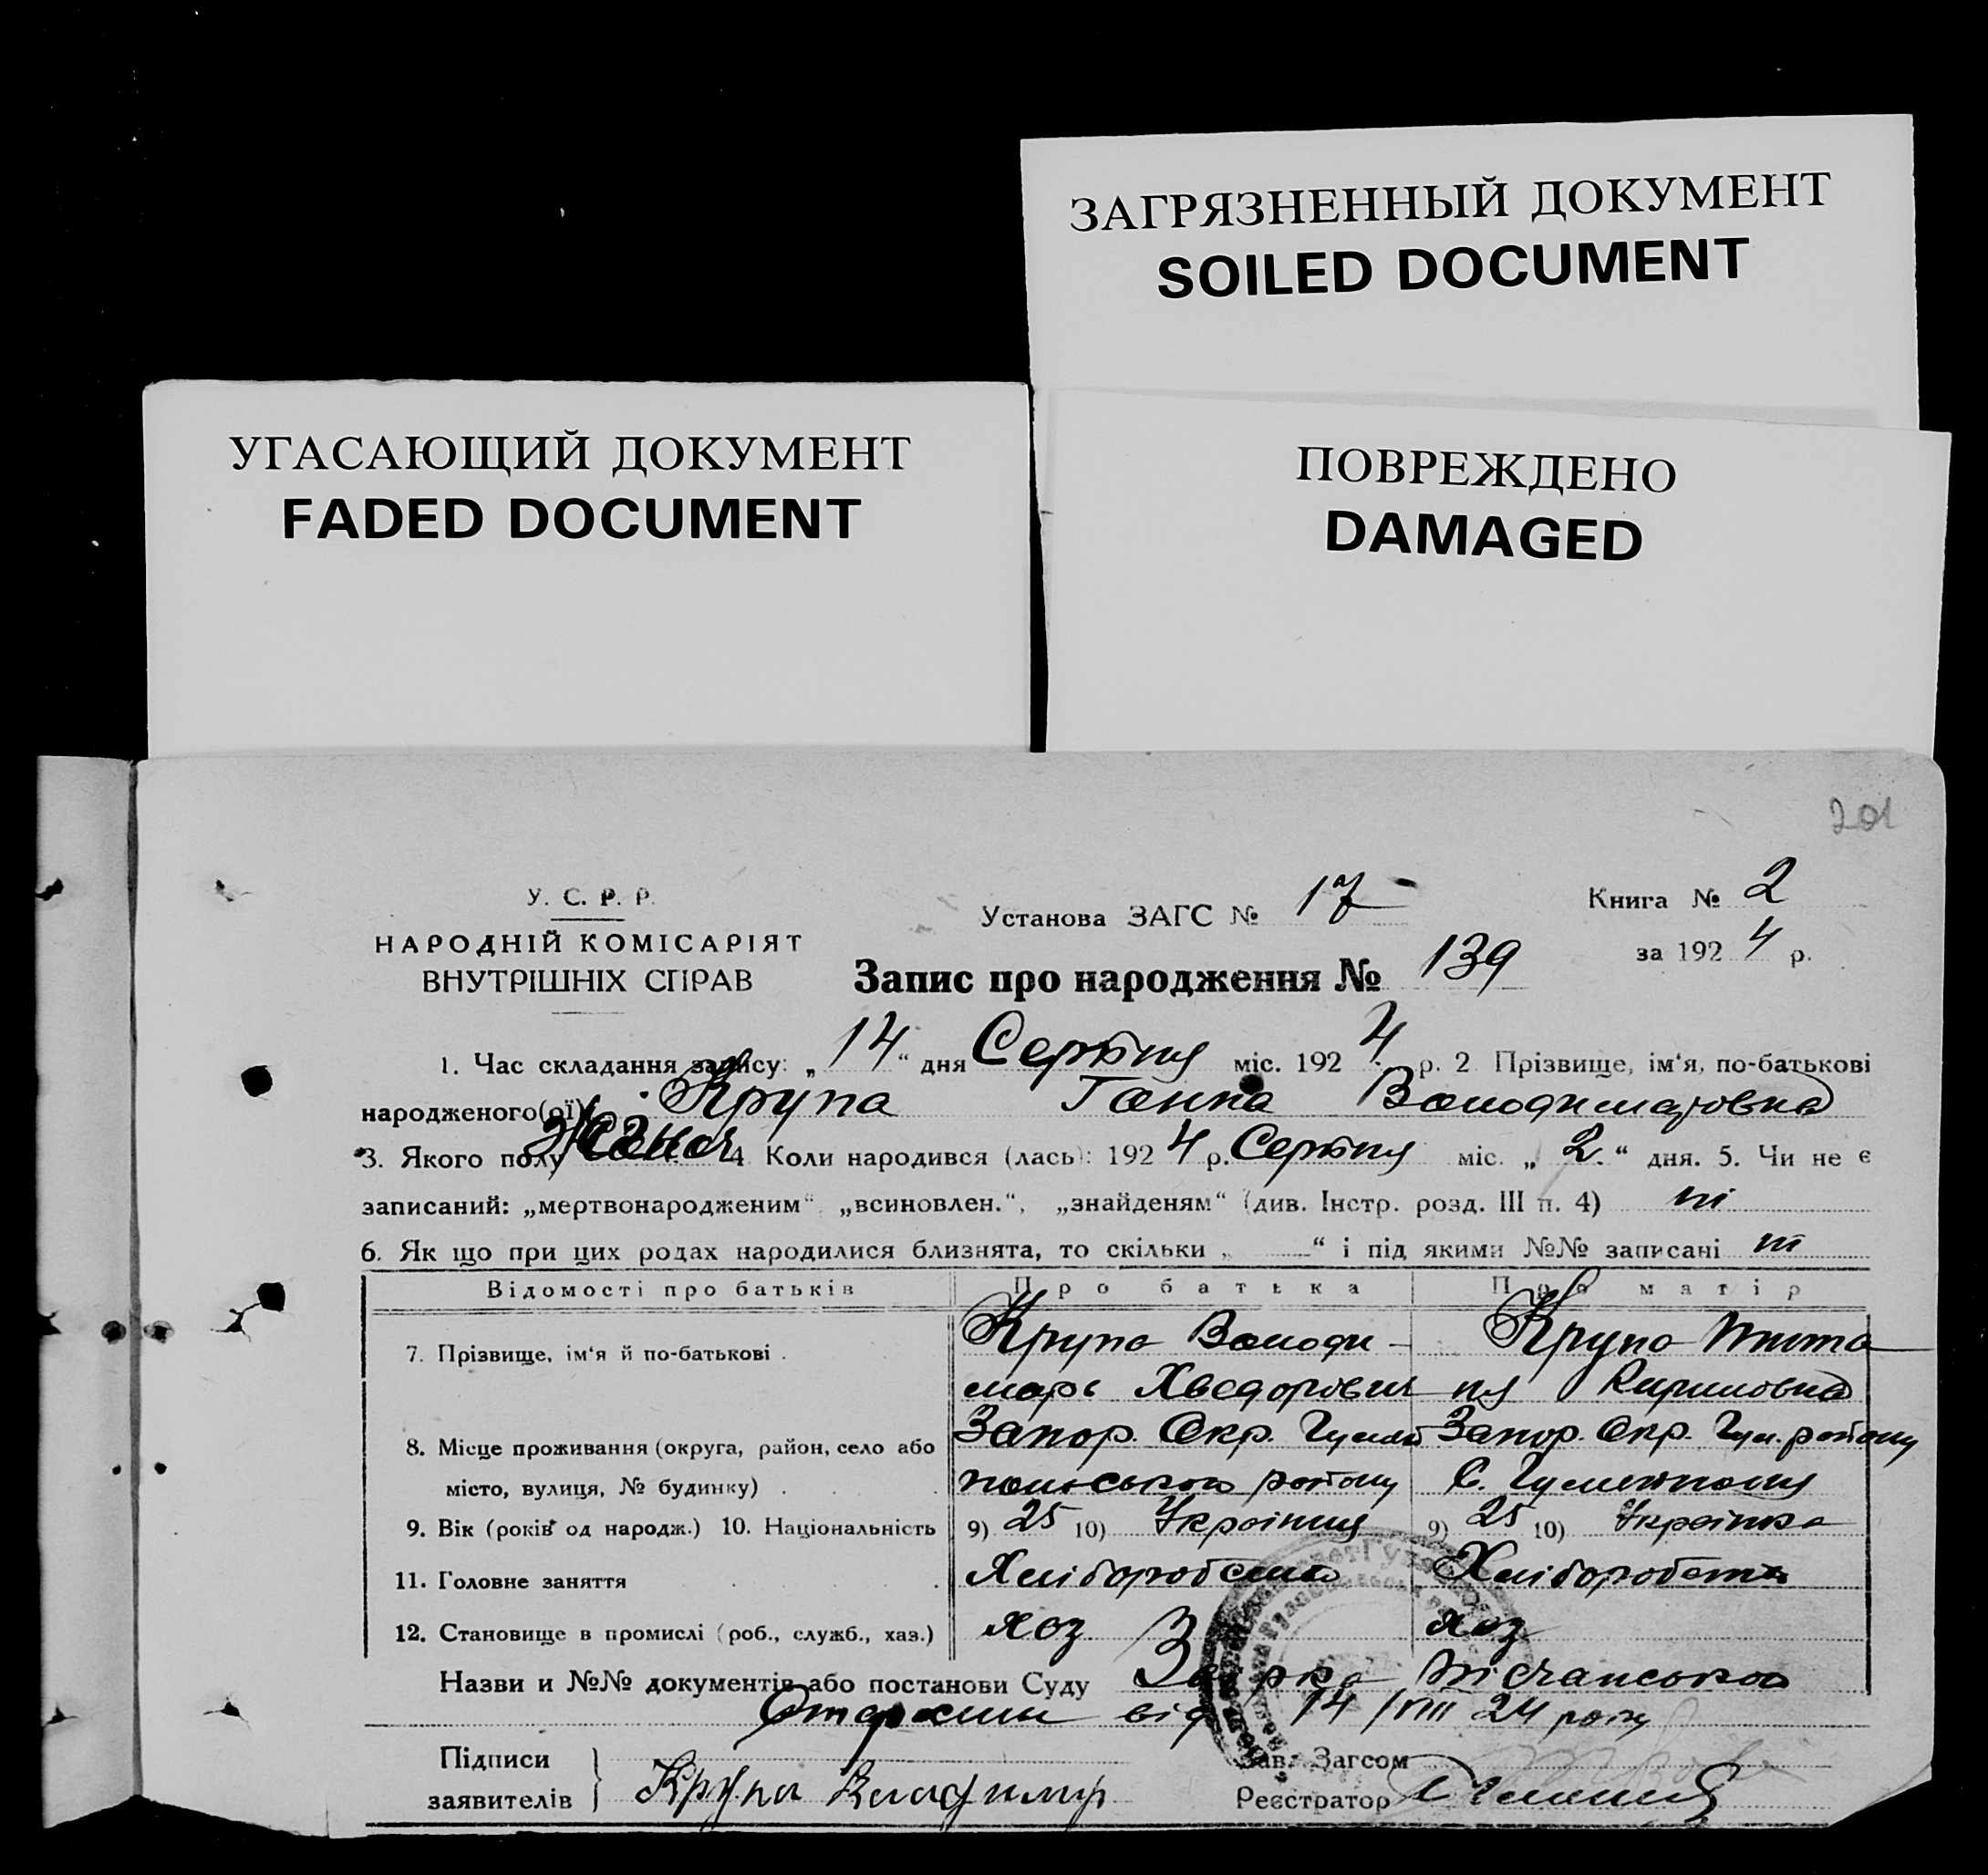 ЗАГРЯЗНЕННЫЙ ДОКУМЕНТ
SOILED DOCUMENT
УГАСАЮЩИЙ ДОКУМЕНТ
FADED DOCUMENT
ПОВРЕЖДЕНО
DAMAGED
201
У. С. Р. Р.
НАРОДНІЙ КОМІСАРІЯТ
ВНУТРІШНІХ СПРАВ
Установа ЗАГС № 17
Книга № 2
за 1924 р.
Запис про народження № 139
1. Час складання запису: „14“ дня Серпня міс. 1924 р. 2 Прізвище, ім‘я, по-батькові
народженого(ої) Крупа Ганна Володимировна
3. Якого полу 4 Коли народився (лась): 1924 р. Серпня міс. „2.“ дня. 5. Чи не є
записаний: „мертвонародженим“ „всиновлен.“, „знайденям“ (див. Інстр. розд. III п. 4) ні
6. Як що при цих родах народилися близнята, то скільки „ “ і під якими №№ записані ні
Відомості про батьків Про батька Про матір
7. Прізвище, ім‘я й по-батькові . Крупа Володи- Крупа
мирь Хведорович Кириловна
8. Місце проживання (округа, район, село або Запор. Окр. Запор. Окр. Гул. району
місто, вулиця, № будинку) . польського району С.
9. Вік (років од народж.) 10. Національність 9) 25 10) Українця 9) 25 10) Українка
11. Головне заняття Хліборобство Хліборобство
12. Становище в промислі (роб., служб., хаз.) хоз хоз
Назви и №№ документів або постанови Суду
від 14/VIII 24 року
Підписи
заявителів } Крупа Владимир
Зав. Загсом
Реєстратор